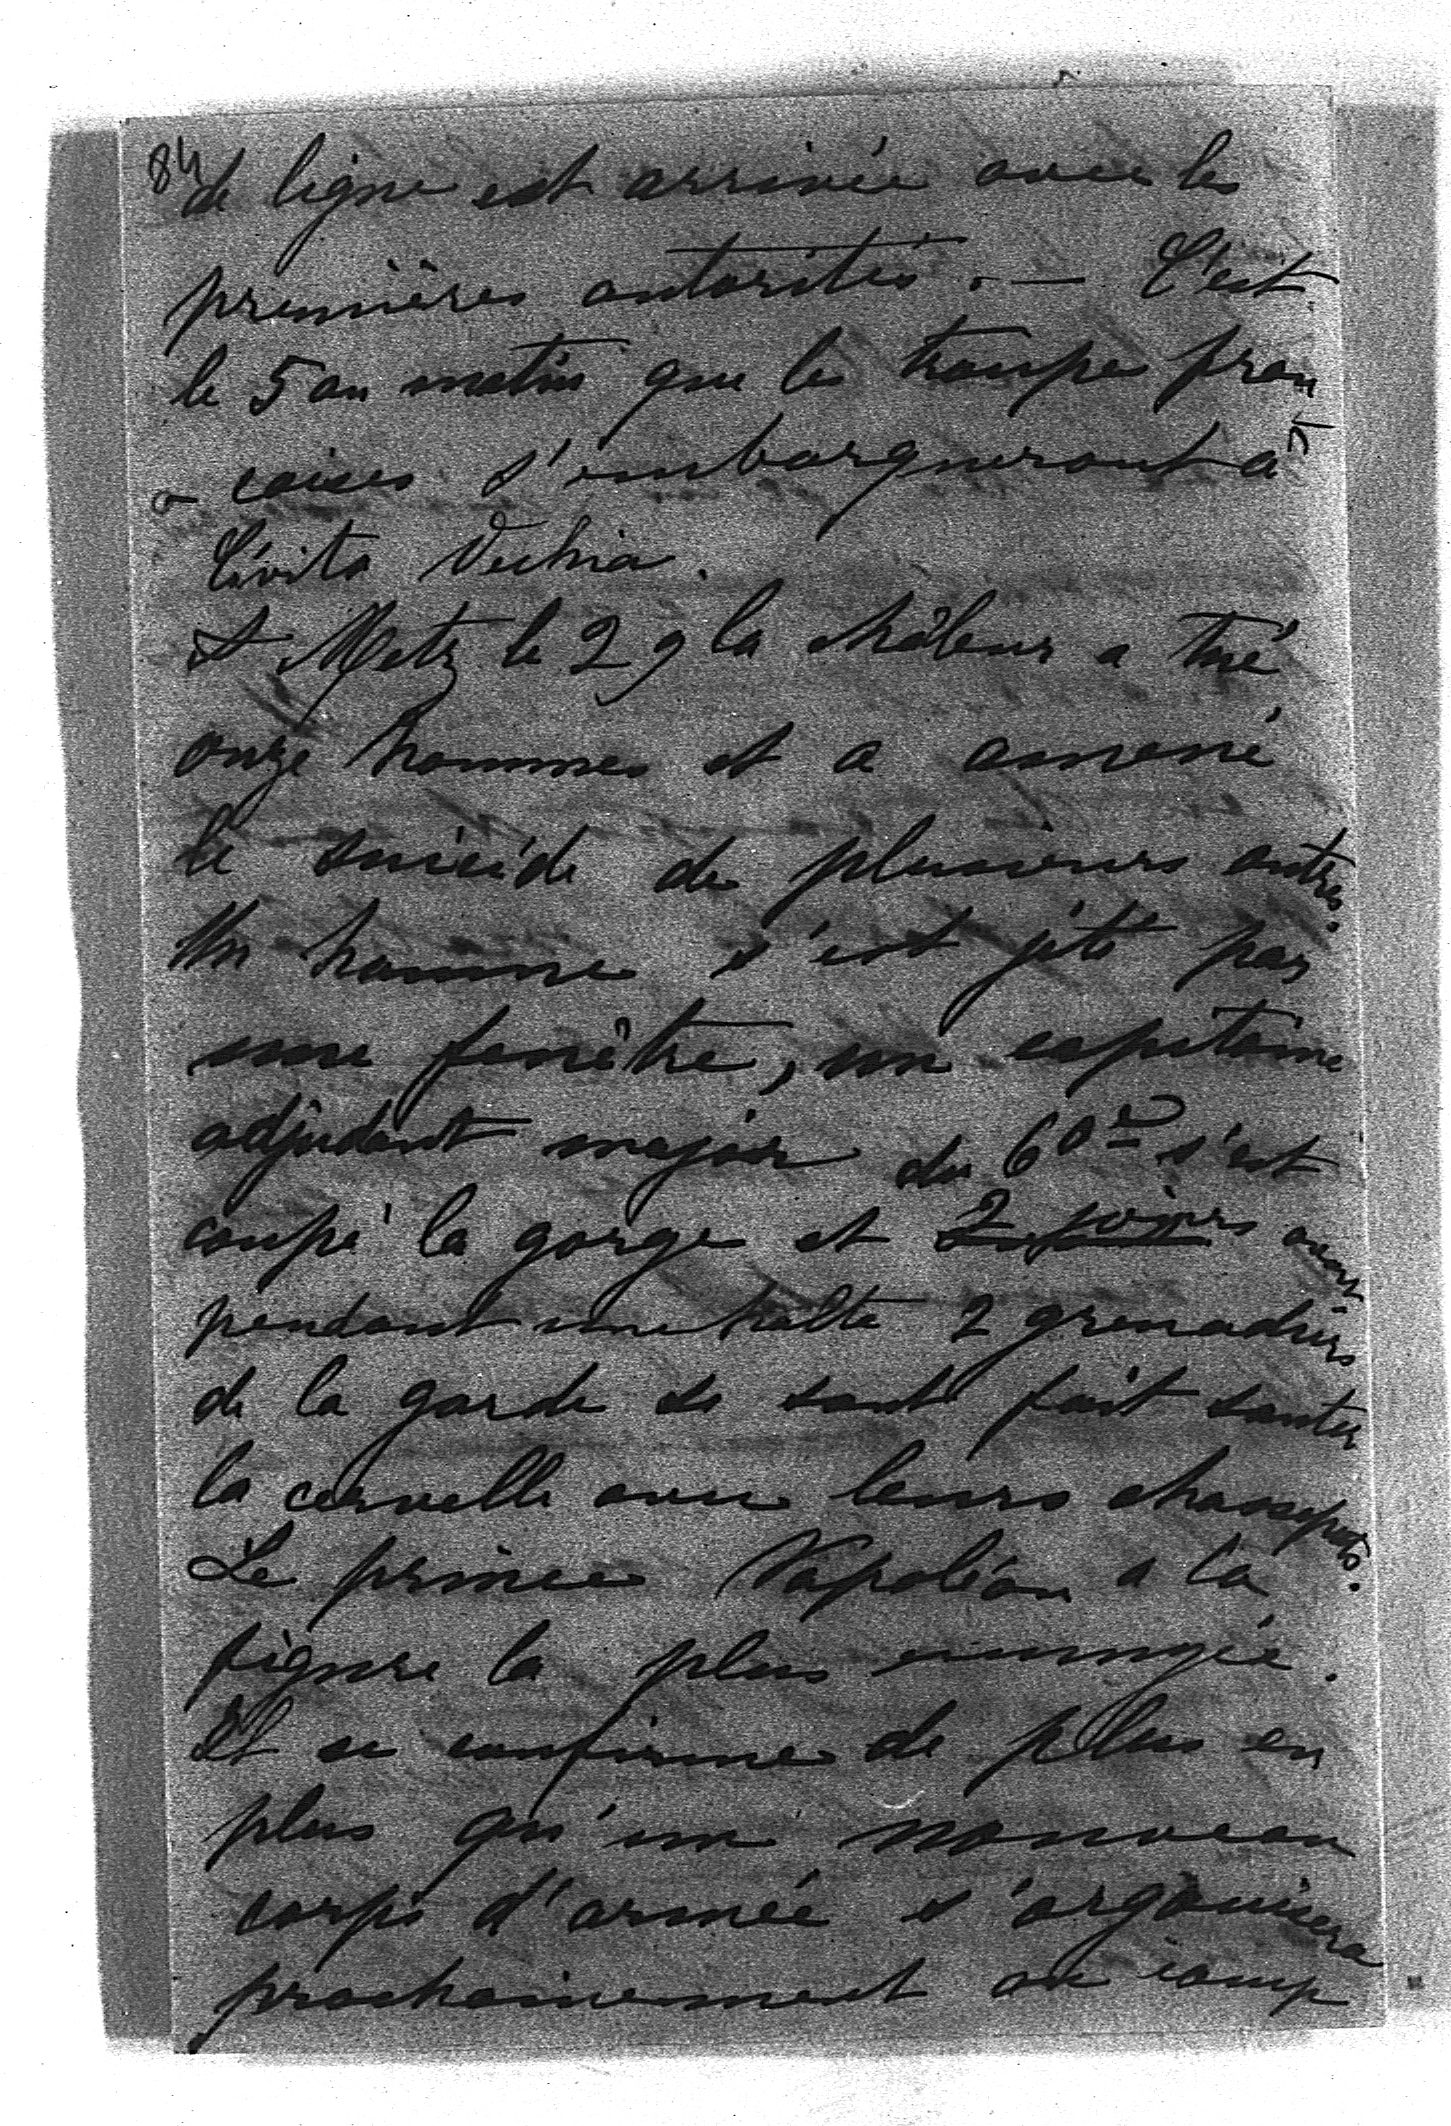 84
de ligne est arrivée avec les
premières autorités. — C'est
le 5 au matin que les troupes fran
- caises s'embarqueront à
Civita Vechia.
A Metz le 29 la châleur a tué
onze hommes et a amené
le suicide de plusieurs autres.
Un homme s'est jété par
une fenêtre, un capitaine
adjudant major du 60e s'est
coupé la gorge et 2 jours avant
pendant une halte 2 grenadiers
de la garde se sont fait sauter
la cervelle avec leurs chassepots.
Le prince Napoléon a la
figure la plus ennuyée.
Il se confirme de plus en
plus qu'un nouveau
corps d'armée s'organisera
prochainement au camp